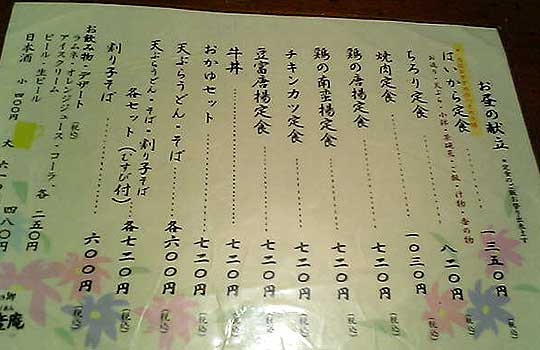 お昼の献立 *定食のご飯お替り出来ます
はいから定食……一三五〇円(税込)
お造り・天ぷら・小鉢・茶碗蒸・ご飯・汁物・香の物
ちろり定食……八二〇円(税込)
焼肉定食……一〇三〇円(税込)
鶏の唐揚定食……七二〇円(税込)
鶏の南蛮定食……七二〇円(税込)
チキンカツ定食……七二〇円(税込)
豆富唐揚定食……七二〇円(税込)
牛丼……七二〇円(税込)
おかゆセット……七二〇円(税込)
天ぷらうどん・そば……各六〇〇円(税込)
天ぷらうどん・そば・割り子そば
各セット(むすび付)……各七二〇円(税込)
割り子そば……六〇〇円(税込)
お飲み物・デザート(税込)
ラムネ・オレンジジュース・コーラ・
アイスクリーム 各二五〇円
ビール・生ビール 四八〇円
日本酒 小 四〇〇円 大